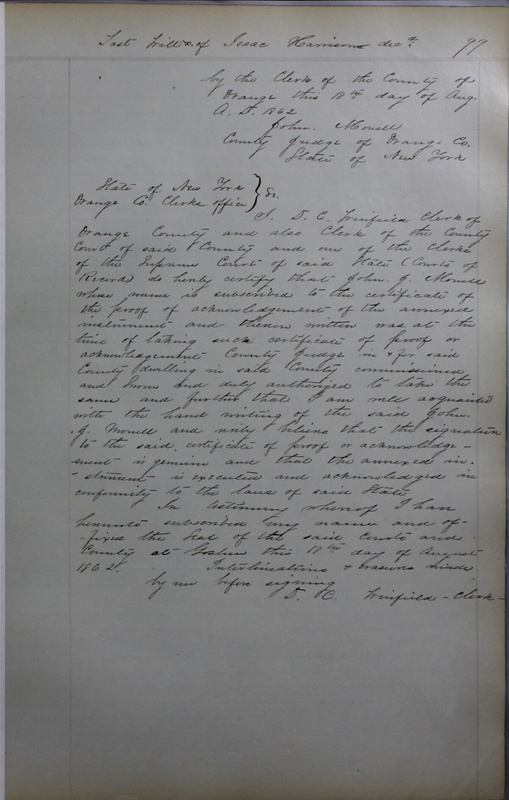 Last Will &c. of Isaac Harrison decd. 99
by the Clerk of the County of
Orange this 18th day of Aug.
A. D. 1862
John. Monell
County Judge of Orange Co.
State of New York
State of New York
Orange Co. Clerks office } Ss.
I. D. C. Winfield Clerk of
Orange County and also Clerk of the County
Court of said County and one of the clerks
of the Supreme Court of said State (Courts of
Record) do herby certify that John. J. Monell
whose name is subscribed to the certificate of
the proof of acknowledgement of the annexed
instrument and thereon written was at the
time of taking such certificate of proof or
acknowledgement County Judge in & for said
County dwelling in said County commissioned
and sworn and duly authorized to take the
same and further that I am well acquainted
with the hand writing of the said John.
J. Monell and verily believe that the signature
to the said. certificate of proof or acknowledge-
ment is genuine and that the annexed in.
-strument is executed and acknowledged in
conformity to the laws of said State
In testimony whereof I have
hereunto subscribed my name and af-
-fixed the Seal of the said Courts and
County at Goshen this 18th day of August
1862. Interlineations & erasures made
by me before signing
D. C. Winfield - Clerk -